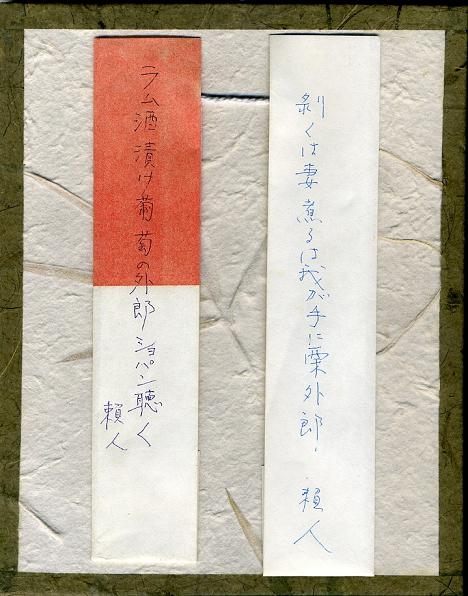 剥くは妻煮るは我が手に栗外郎 頼人
ラム酒漬け葡萄の外郎ショパン聴く
頼人